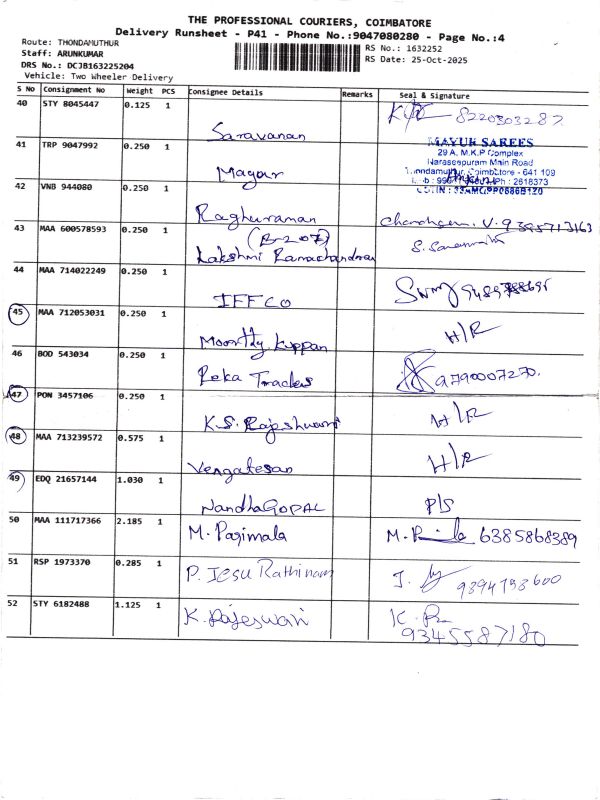 THE PROFESSIONAL COURIERS, COIMBATORE
Delivery Runsheet - P41 - Phone No.:9047080280 - Page No.:4
Route: THONDAMUTHUR
RS No.: 1632252
Staff: ARUNKUMAR
RS Date: 25-Oct-2025
DRS No.: DCJB163225204
Vehicle: Two Wheeler Delivery
S No Consignment No Weight PCS Consignee Details Remarks Seal & Signature
40 STY 8045447 0.125 1 Saravanan 8220303282
41 TRP 9047992 0.250 1 Magar
MAYUR SAREES
29 A, M.K.P Complex
Narassepuram Main Road
Thondamuthur, Coimbatore - 641 109
42 VNB 944080 0.250 1 Raghuraman V. 9395713163
43 MAA 600578593 0.250 1 (B-207)
Lakshmi Ramachandran
44 MAA 714022249 0.250 1 IFFCO
45 MAA 712053031 0.250 1 Moorthy Kuppan H/R
46 BOD 543034 0.250 1 Reka Trades 9790007270.
47 PON 3457106 0.250 1 K.S. Rajeshwari H/R
48 MAA 713239572 0.575 1 Vengatesan H/R
49 EDQ 21657144 1.030 1 NandhaGOPAL P/S
50 MAA 111717366 2.185 1 M. Parimala 6385868389
51 RSP 1973370 0.285 1 P. Jesu Rathinam J. 9394793600
52 STY 6182488 1.125 1 K. Rajeswari K. R
9345587180